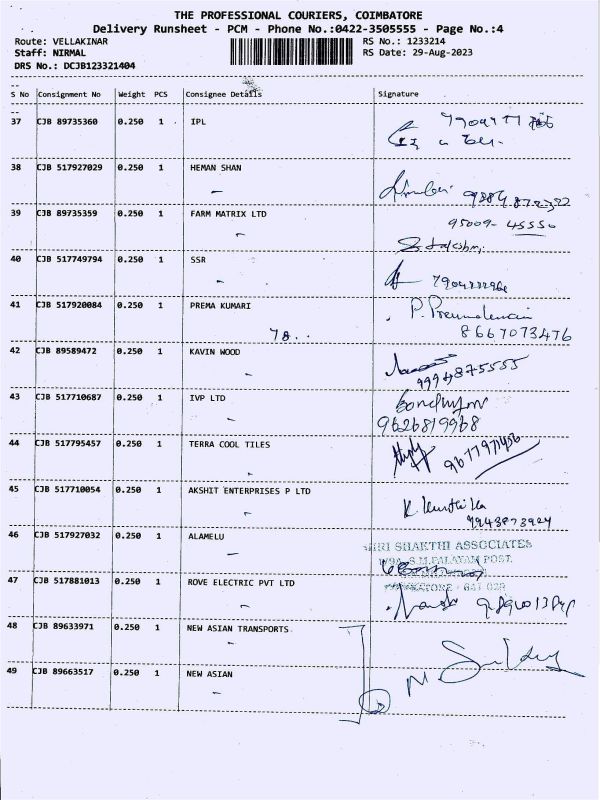 THE PROFESSIONAL COURIERS, COIMBATORE
Delivery Runsheet - PCM - Phone No.:0422-3505555 - Page No.:4
Route: VELLAKINAR RS No.: 1233214
Staff: NIRMAL RS Date: 29-Aug-2023
DRS No.: DCJB123321404
S No Consignment No Weight PCS Consignee Details Signature
37 CJB 89735360 0.250 1 IPL
38 CJB 517927029 0.250 1 HEMAN SHAN
39 CJB 89735359 0.250 1 FARM MATRIX LTD
95009-45550
40 CJB 517749794 0.250 1 SSR
41 CJB 517920084 0.250 1 PREMA KUMARI
78..
8667073476
42 CJB 89589472 0.250 1 KAVIN WOOD
9994875555
43 CJB 517710687 0.250 1 IVP LTD
9626819968
44 CJB 517795457 0.250 1 TERRA COOL TILES
9677971456
45 CJB 517710054 0.250 1 AKSHIT ENTERPRISES P LTD
9943873924
46 CJB 517927032 0.250 1 ALAMELU
SHRI SHAKTHI ASSOCIATES
S.M.PALAYAM POST,
47 CJB 517881013 0.250 1 ROVE ELECTRIC PVT LTD
48 CJB 89633971 0.250 1 NEW ASIAN TRANSPORTS
49 CJB 89663517 0.250 1 NEW ASIAN